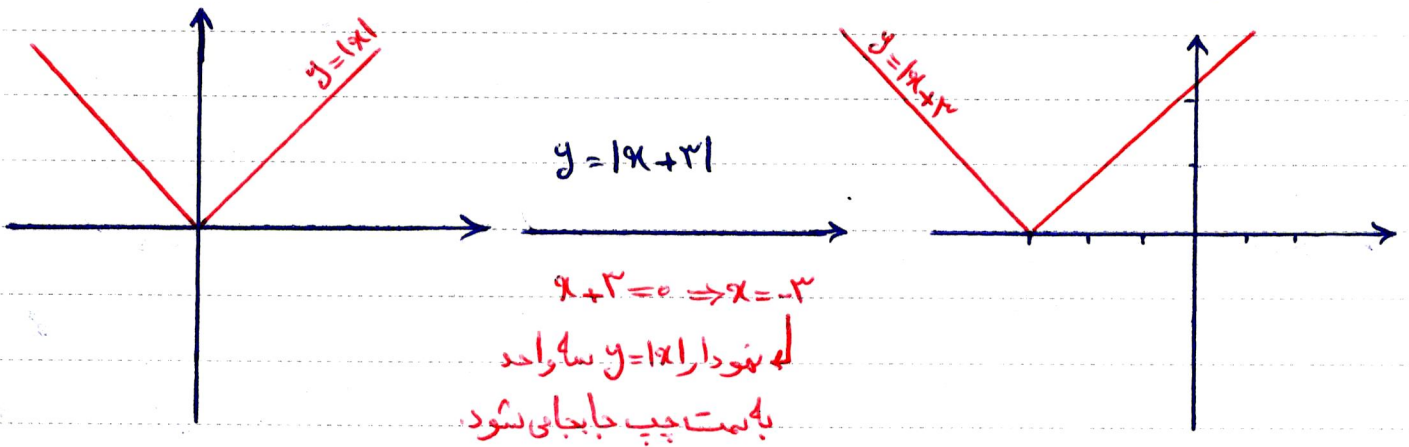 y=|x|
y=|x+۳|
y=|x+۳|
x+۳=۰ ⇒ x=-۳
نمودار y=|x| سه واحد
به سمت چپ جابجا می شود